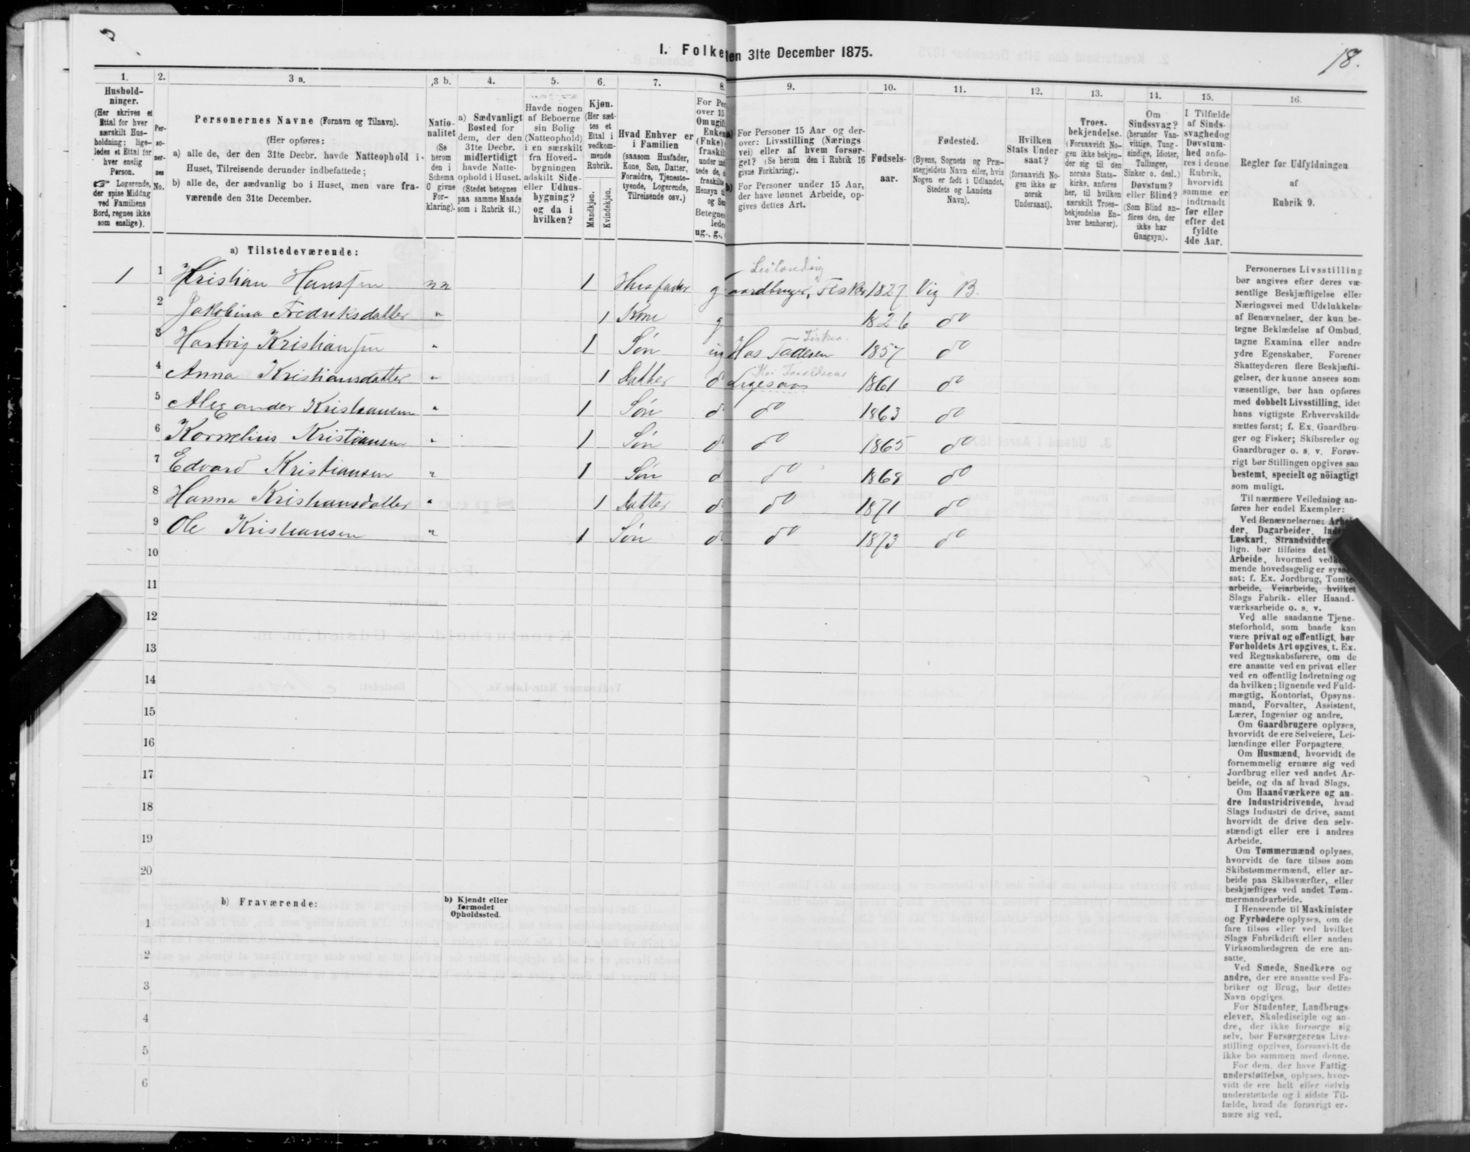 18.
I. Folketen 31te December 1875.
1.
Hushold-
ninger.
(Her skrives et
Ettal for hver
særskilt Hus-
holdning; lige-
ledes et Ettal for
hver enslig
Person.
☞ Logerende,
der spise Middag
ved Familiens
Bord, regnes ikke
som enslige).
2.
Per-
so-
ner-
nes
No.
3 a.
Personernes Navne (Fornavn og Tilnavn).
(Her opføres:
a) alle de, der den 31te Decbr. havde Natteophold i
Huset, Tilreisende derunder indbefattede;
b) alle de, der sædvanlig bo i Huset, men vare fra-
værende den 31te December.
3 b.
Natio-
nalitet
(Se
herom
den i
Schema
O givne
For-
klaring).
4.
a) Sædvanligt
Bosted for
dem, der den
31te Decbr.
midlertidigt
havde Natte-
ophold i Huset.
(Stedet betegnes
paa samme Maade
som i Rubrik 11.)
5.
Havde nogen
af Beboerne
sin Bolig
(Natteophold)
i en særskilt
fra Hoved-
bygningen
adskilt Side-
eller Udhus-
bygning?
og da i
hvilken?
6.
Kjøn.
(Her sæt-
tes et
Ettal i
vedkom-
mende
Rubrik.
Mandkjøn.
Kvindekjøn.
7.
Hvad Enhver er
i Familien
(saasom Husfader,
Kone, Søn, Datter,
Forældre, Tjeneste-
tyende, Logerende,
Tilreisende osv.)
8.
9.
For Personer 15 Aar og der-
over: Livsstilling (Nærings
vei) eller af hvem forsør-
get? (Se herom den i Rubrik 16
givne Forklaring).
For Personer under 15 Aar,
der have lønnet Arbeide, op-
gives dettes Art.
10.
Fødsels-
aar.
11.
Fødested.
(Byens, Sognets og Præ-
stegjeldets Navn eller, hvis
Nogen er født i Udlandet,
Stedets og Landets
Navn).
12.
Hvilken
Stats Under
saat?
(forsaavidt No-
gen ikke er
norsk
Undersaat).
13.
Troes-
bekjendelse.
(Forsaavidt No-
gen ikke bekjen-
der sig til den
norske Stats-
kirke, anføres
her, til hvilken
særskilt Troes-
bekjendelse En-
hver henhører).
14.
Om
Sindssvag?
(herunder Van-
vittige, Tung-
sindige, Idioter,
Tullinger,
Sinker o. desl.)
Døvstum?
eller Blind?
(Som Blind an-
føres den, der
ikke har
Gangsyn).
15.
I Tilfælde
af Sinds-
svaghed og
Døvstum-
hed anfø-
res i denne
Rubrik,
hvorvidt
samme er
indtraadt
før eller
efter det
fyldte
4de Aar.
16.
Regler for Udfyldningen
af
Rubrik 9.
a) Tilstedeværende:
Leilænding
1 1 Kristian Hansen nn 1 Husfader g Gaardbruger, Fisker 1827 Vig B.
2 Jakobina Fredriksdatter " 1 Kone g 1826 do
Fisker
3 Hartvig Kristiansen " 1 Søn ug Hos 1857 do
4 Anna Kristiansdatter " 1 Datter d 1861 do
5 Alexander Kristiansen " 1 Søn d do 1863 do
6 Kornelius Kristiansen " 1 Søn d do 1865 do
7 Edvard Kristiansen " 1 Søn d do 1868 do
8 Hanna Kristiansdatter " 1 Datter d do 1871 do
9 Ole Kristiansen " 1 Søn d do 1873 do
10
11
12
13
14
15
16
17
18
19
20
b) Fraværende:
b) Kjendt eller
formodet
Opholdssted.
1
2
3
4
5
6
Personernes Livsstilling
bør angives efter deres væ-
sentlige Beskjæftigelse eller
Næringsvei med Udelukkelse
af Benævnelser, der kun be-
tegne Beklædelse af Ombud,
tagne Examina eller andre
ydre Egenskaber. Forener
Skatteyderen flere Beskjæfti-
gelser, der kunne ansees som
væsentlige, bør han opføres
med dobbelt Livsstilling, idet
hans vigtigste Erhvervskilde
sættes først; f. Ex. Gaardbru-
ger og Fisker; Skibsreder og
Gaardbruger o. s. v. Forøv-
rigt bør Stillingen opgives saa
bestemt, specielt og nøiagtigt
som muligt.
Til nærmere Veiledning an-
føres her endel Exempler:
Ved Benævnelserne:
der, Dagarbeider,
Løskarl, Strandsidder
lign. bør tilføies det
Arbeide, hvormed
mende hovedsagelig er
sat; f. Ex. Jordbrug, Tomte-
arbeide, Veiarbeide, hvilket
Slags Fabrik- eller Haand-
værksarbeide o. s. v.
Ved alle saadanne Tjene-
steforhold, som baade kan
være privat og offentligt, bør
Forholdets Art opgives, t. Ex.
ved Regnskabsførere, om de
ere ansatte ved en privat eller
ved en offentlig Indretning og
da hvilken; lignende ved Fuld-
mægtig, Kontorist, Opsyns-
mand, Forvalter, Assistent,
Lærer, Ingeniør og andre.
Om Gaardbrugere oplyses,
hvorvidt de ere Selveiere, Lei-
lændinge eller Forpagtere.
Om Husmænd, hvorvidt de
fornemmelig ernære sig ved
Jordbrug eller ved andet Ar-
beide, og da af hvad Slags.
Om Haandværkere og an-
dre Industridrivende, hvad
Slags Industri de drive, samt
hvorvidt de drive den selv-
stændigt eller ere i andres
Arbeide.
Om Tømmermænd oplyses,
hvorvidt de fare tilsøs som
Skibstømmermænd, eller ar-
beide paa Skibsværfter, eller
beskjæftiges ved andet Tøm-
mermandsarbeide.
I Henseende til Maskinister
og Fyrbødere oplyses, om de
fare tilsøs eller ved hvilket
Slags Fabrikdrift eller anden
Virksomhedsgren de ere an-
satte.
Ved Smede, Snedkere og
andre, der ere ansatte ved Fa-
briker og Brug, bør dettes
Navn opgives.
For Studenter, Landbrugs-
elever, Skoledisciple og an-
dre, der ikke forsørge sig
selv, bør Forsørgerens Livs-
stilling opgives, forsaavidt de
ikke bo sammen med denne.
For dem, der have Fattig-
understøttelse, oplyses, hvor-
vidt de ere helt eller delvis
understøttede og i sidste Til-
fælde, hvad de forøvrigt er-
nære sig ved.